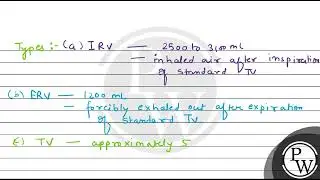 Types :- (a) IRV — 2500 to 3100 mL
– inhaled air after inspiration
of standard TV
(b) ERV — 1200 mL
– forcibly exhaled out after expiration
of standard TV
(c) TV — approximately 5
PW